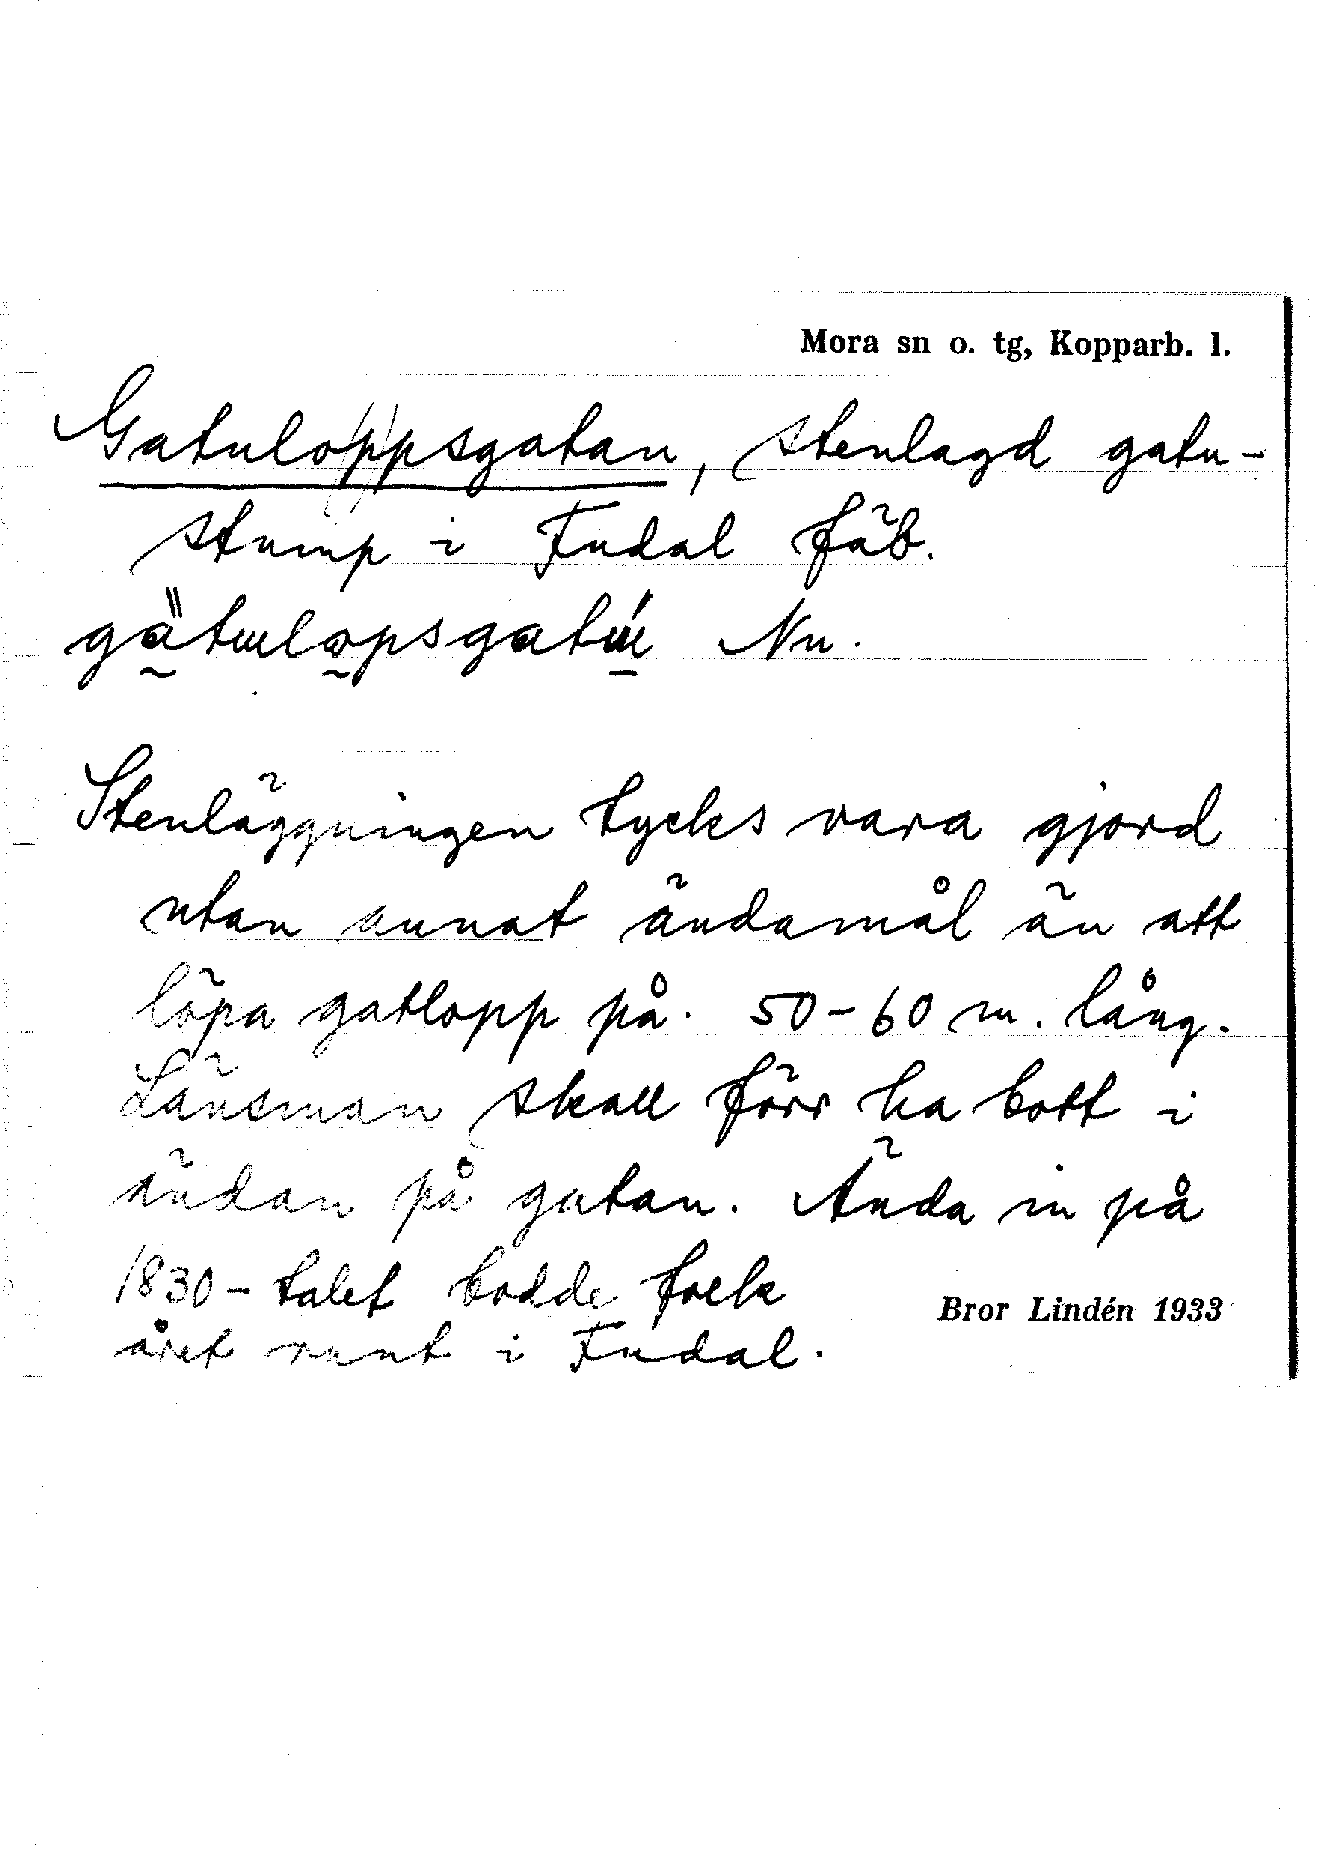 Mora sn o. tg, Kopparb. l.
Gatuloppsgatan, stenlagd gatu-
stump i Fudal fäb.
Nu.
Stenläggningen tycks vara gjord
utan annat ändamål än att
löpa gatlopp på. 50-60 m. lång.
Länsman skall förr ha bott i
ändan på gatan. Ända in på
1830-talet bodde folk
Bror Lindén 1933
året runt i Fudal.